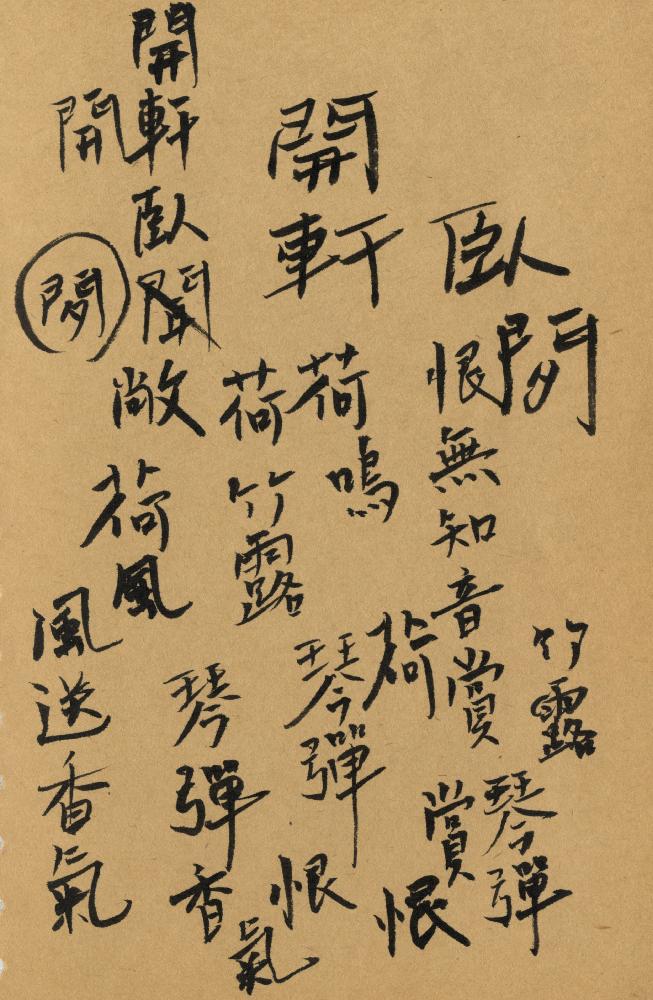 竹露
琴彈
臥閒
恨無知音賞
賞恨
開軒
荷鳴
荷
琴彈
恨
荷
竹露
琴彈
香氣
開軒臥聞
敞
荷風
開
閒
風送香氣